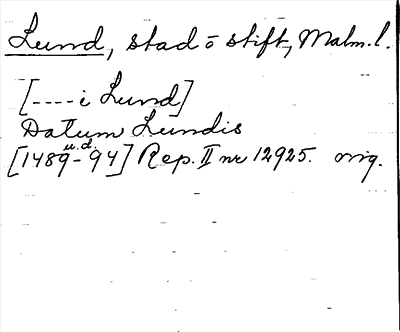 Lund, stad o stift, Malm.l.
[----i Lund]
Datum Lundis
u.d.
[1489-94] Rep. II nr 12925. orig.